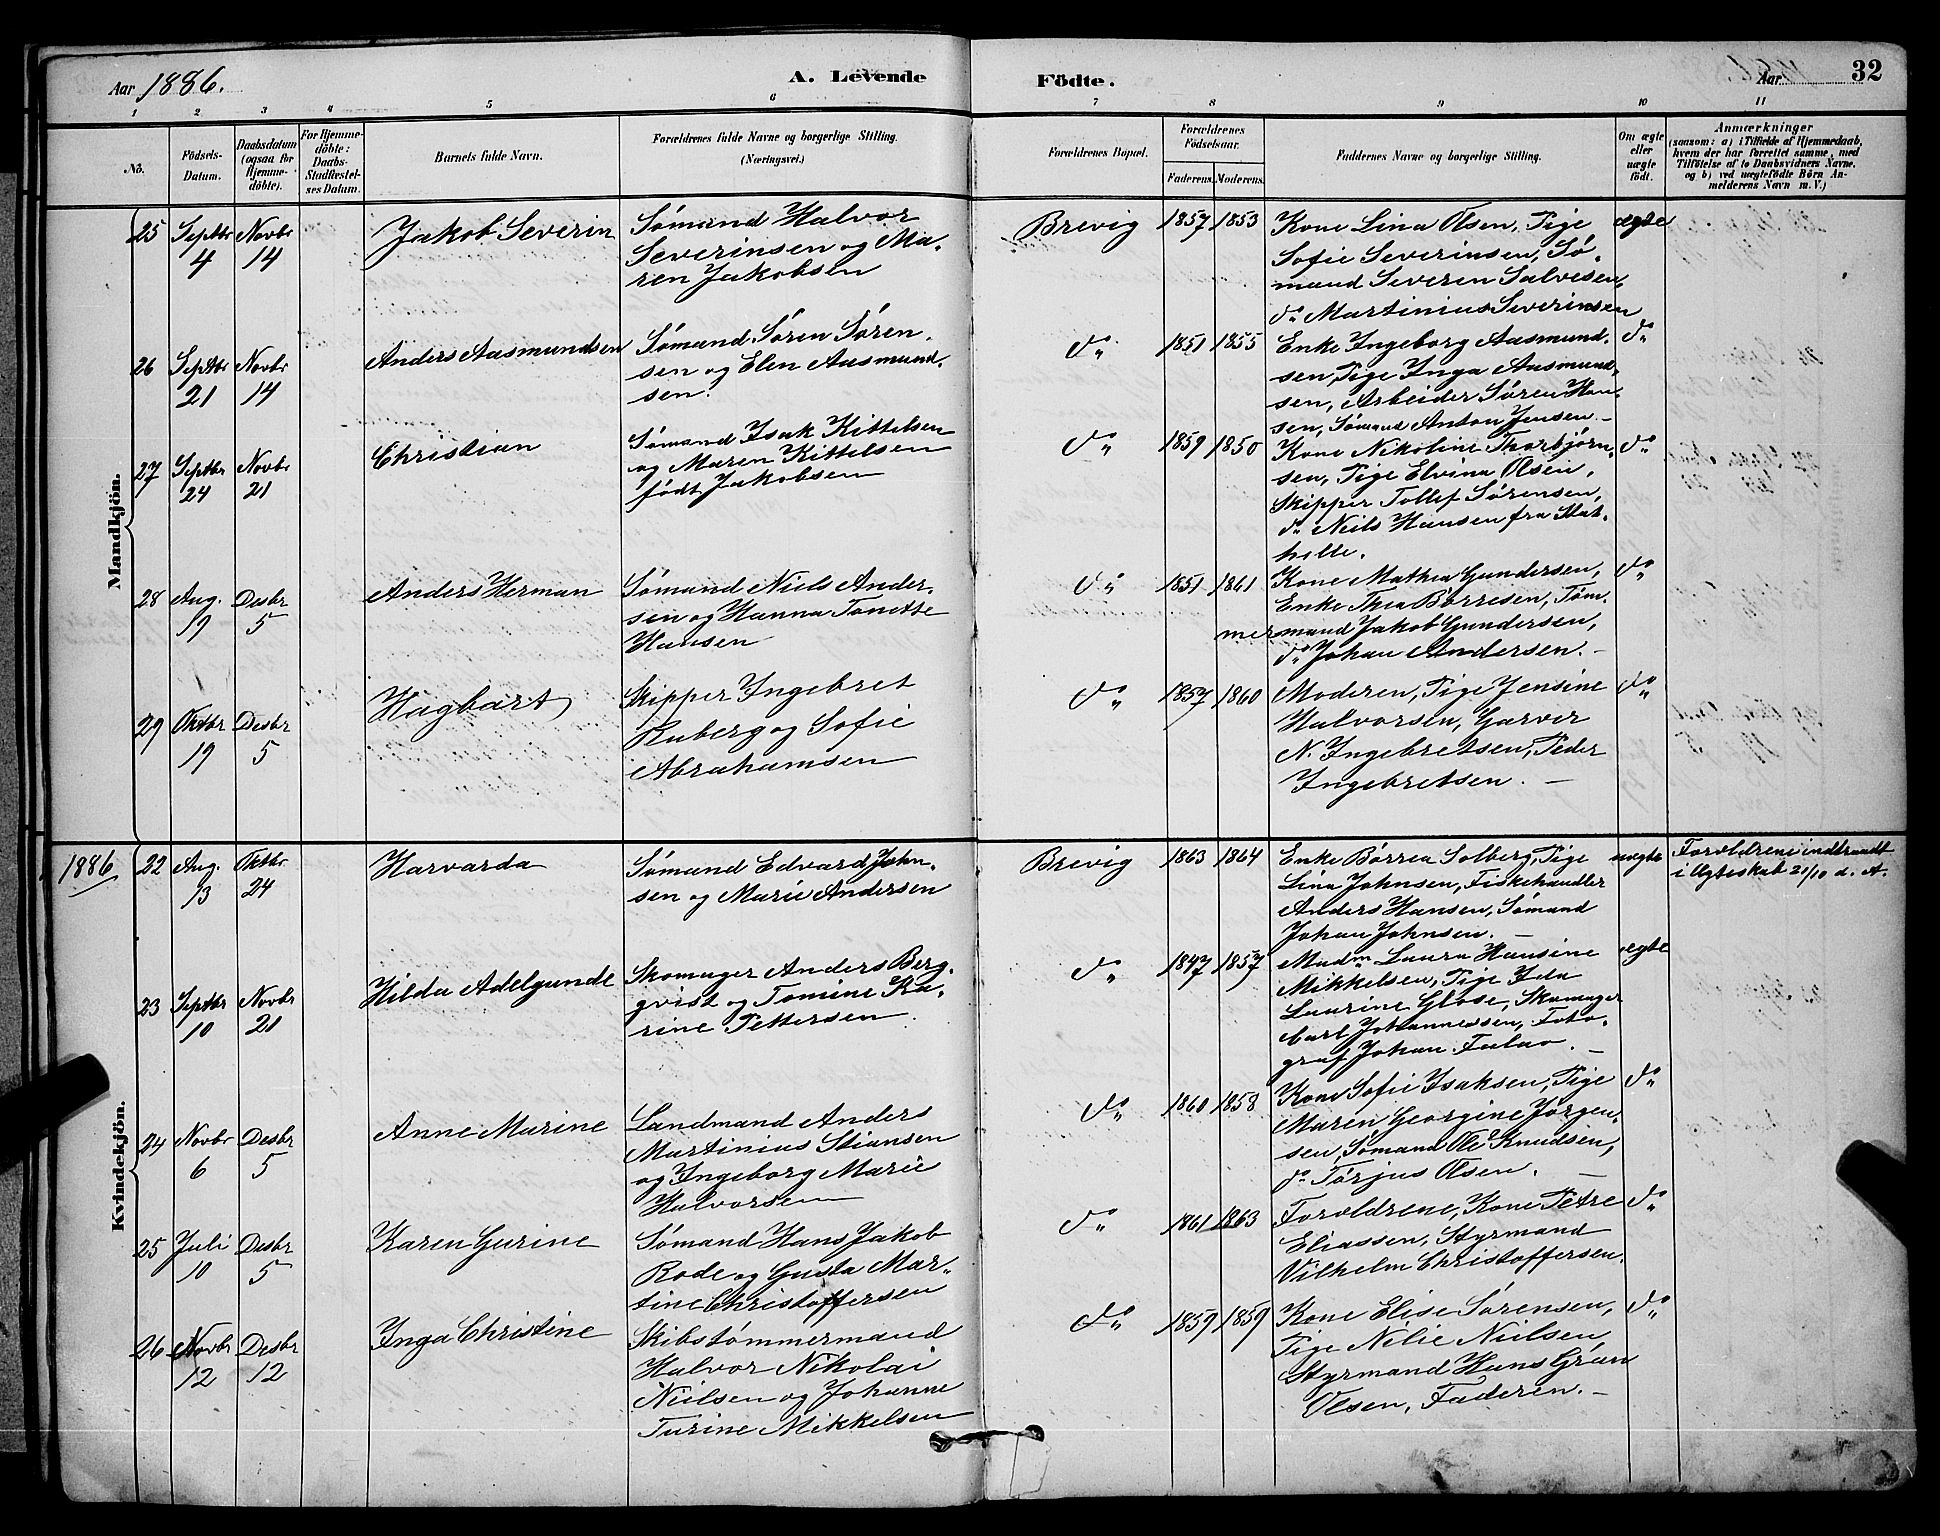 Aar 1886.
A. Levende
Födte.
Aar
32
1 2 3 4 5 6 7 8 9 10 11
No.
Födsels-Datum.
Daabsdatum (ogsaa for Hjemmedöbte).
For Hjemmedöbte: Daabs-Stadfæstelses Datum.
Barnets fulde Navn.
Forældrenes fulde Navne og borgerlige Stilling.
(Næringsvei.)
Forældrenes Bopæl.
Forældrenes Födselsaar.
Faderens. Moderens.
Faddernes Navne og borgerlige Stilling.
Om ægte eller uægte födt.
Anmærkninger
(saasom: a) i Tilfælde af Hjemmedaab, hvem der har forrettet samme, med Tilföielse af to Daabsvidners Navne, og b) ved uægtefödte Börn Anmelderens Navn m. V.)
Mandkjön.
25 Septbr 4 Novbr 14 Jakob Severin
Sømand Halvor
Severinsen og Ma-
ren Jakobsen
Brevig 1857 1853
Kone Lina Olsen, Pige
Sofie Severinsen, Sø-
mand Severin Salvesen,
do Martinius Severinsen
ægte
26 Septbr 21 Novbr 14 Anders Aasmundsen
Sømand Søren Søren-
sen og Elen Aasmund-
sen.
do 1851 1855
Enke Ingeborg Aasmund-
sen, Pige Inga Aasmund-
sen, Arbeider Søren Han-
sen, Sømand Anton Jensen.
do
27 Septbr 24 Novbr 21 Christian
Sømand Isak Kittelsen
og Maren Kittelsen
født Jakobsen
do 1859 1850
Kone Nikoline Thorbjørn-
sen, Pige Elvina Olsen,
Skipper Tollef Sørensen,
do Neils Hansen fra Stat-
helle.
do
28 Aug. 19 Desbr 5 Anders Herman
Sømand Niels Ander-
sen og Hanna Tonette
Hansen
do 1851 1861
Kone Mathea Gundersen,
Enke Thea Børresen, Tøm-
mermand Jakob Gundersen,
do Johan Andersen.
do
29 Oktbr 19 Desbr 5 Hagbart
Skipper Ingebret
Ruberg og Sofie
Abrahamsen
do 1857 1860
Moderen, Pige Jensine
Halvorsen, Garver
N. Ingebretsen, Peder
Ingebretsen.
do
Kvindekjön.
1886
22 Aug. 13 Oktbr 24 Harvarda
Sømand Edvard John-
sen og Marie Andersen
Brevig 1863 1864
Enke Børrea Solberg, Pige
Lina Johnsen, Fiskehandler
Anders Hansen, Sømand
Johan Johnsen.
uægte
Forældrene indtraadt
i Ægteskab 21/10 d. A.
23 Septbr 10 Novbr 21 Hilda Adelgunde
Skomager Anders Berg-
qvist og Tomine Ka-
rine Pettersen.
do 1847 1857
Madm Laura Hansine
Mikkelsen, Pige Ida
Laurine Glose, Skomager
Carl Johannessen, Foto-
graf Johan
ægte
24 Novbr 6 Desbr 5 Anne Marine
Landmand Anders
Martinius Stiansen
og Ingeborg Marie
Halvorsen
do 1860 1858
Kone Sofie Isaksen, Pige
Maren Georgine Jørgen-
sen, Sømand Ole Knudsen,
do Tørjus Olsen.
do
25 Juli 10 Desbr 5 Karen Gurine
Sømand Hans Jakob
Rode og Gusta Mar-
tine Christoffersen
do 1861 1863
Forældrene, Kone Petre
Eliassen, Styrmand
Vilhelm Christoffersen.
do
26 Novbr 12 Desbr 12 Inga Christine
Skibstømmermand
Halvor Nikolai
Nielsen og Johanne
Turine Mikkelsen
do 1859 1859
Kone Elise Sørensen,
Pige Nilie Nielsen,
Styrmand Hans Gran
Olsen, Faderen.
do